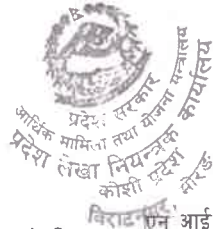 प्रदेश सरकार
आर्थिक मामिला तथा योजना मन्त्रालय
प्रदेश लेखा नियन्त्रक कार्यालय
कोशी प्रदेश
मोरङ
विराटनगर
एन आई